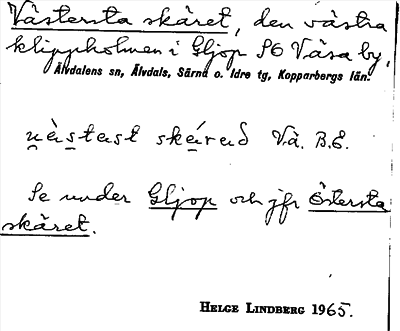 Västersta skäret, den västra
klippholmen i Gljop SO Våsa by,
Älvdalens sn, Älvdals, Särna o. Idre tg, Kopparbergs län.
næstast skǽrað V.å. B.E.
Se under Gljop och jfr Östersta
skäret.
HELGE LINDBERG 1965.